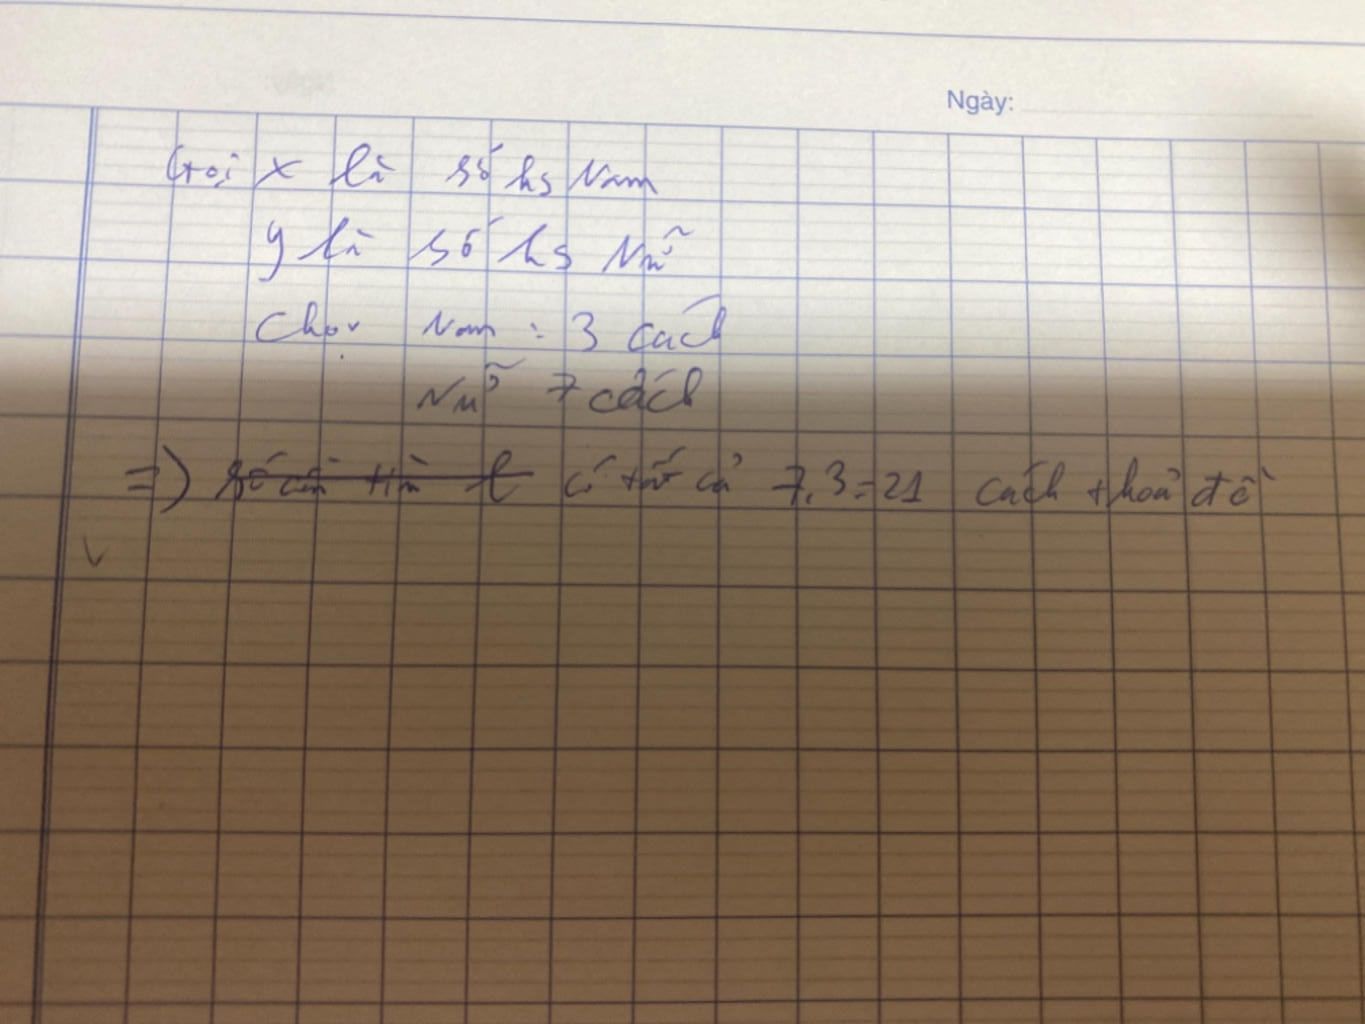 Ngày:
Gọi x là số hs Nam
y là số hs Nữ
Chọn Nam : 3 cách
Nữ 7 cách
=> số cần tìm t có tất cả 7.3=21 cách thoả đề